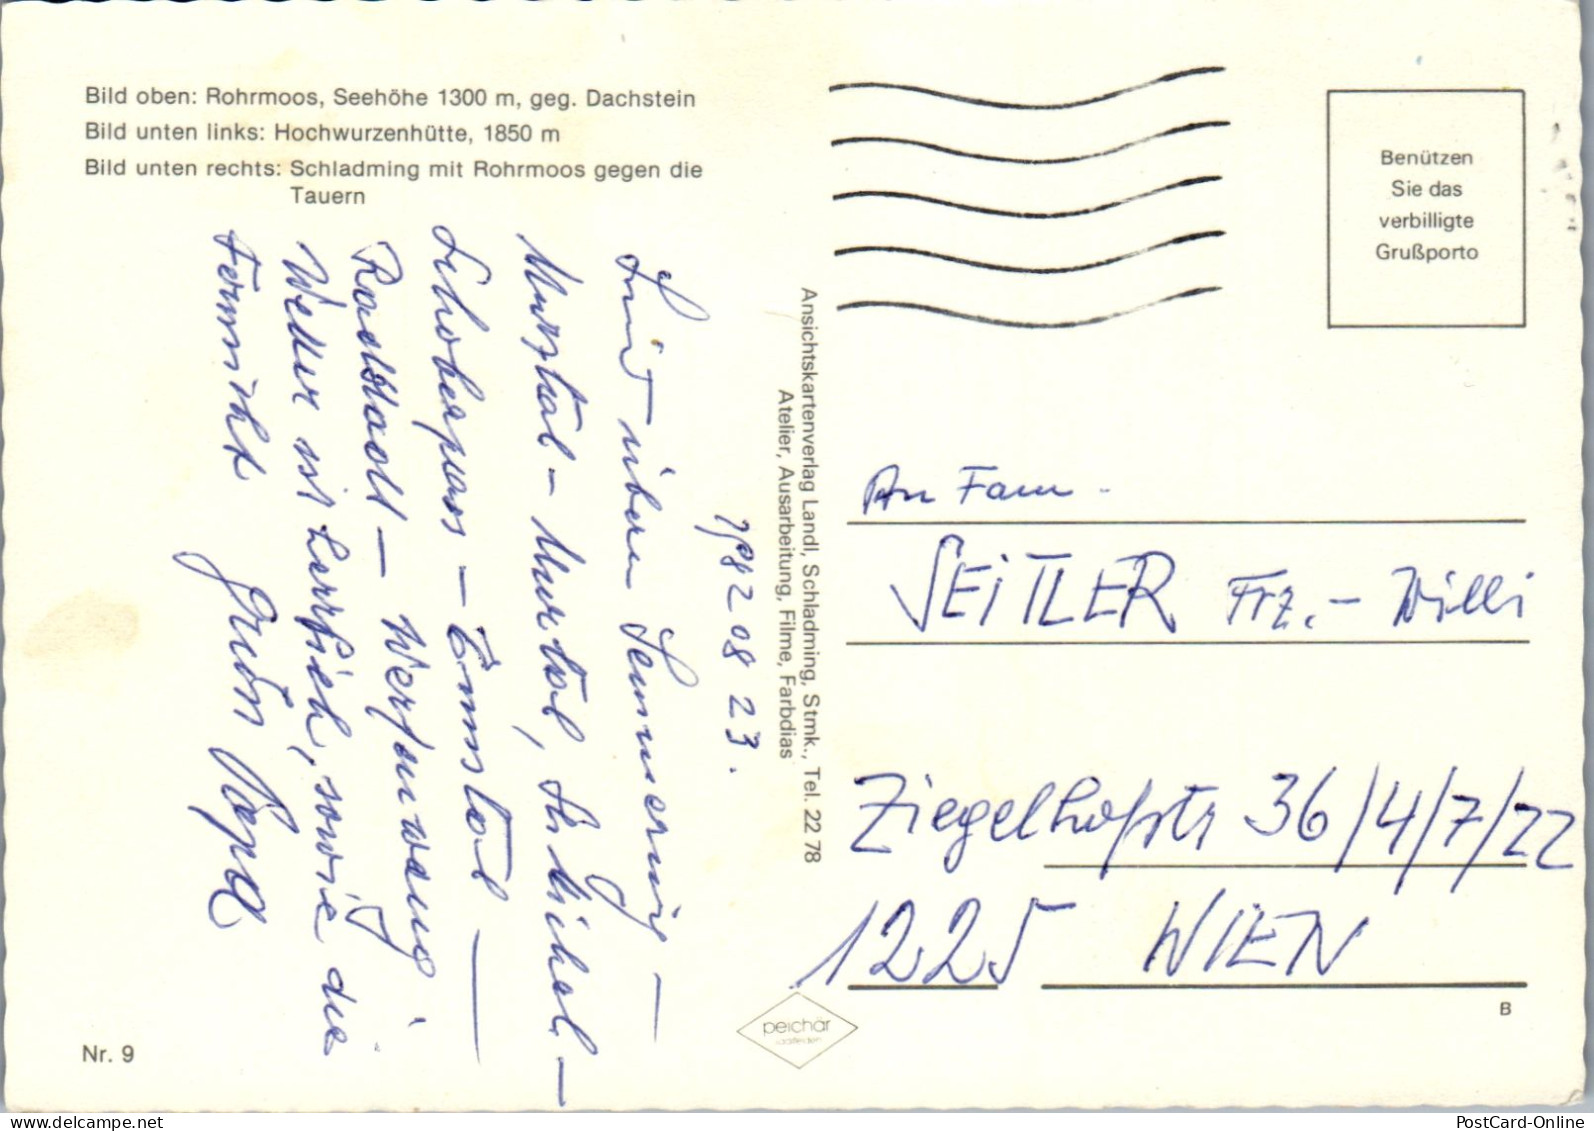 Bild oben: Rohrmoos, Seehöhe 1300 m, geg. Dachstein
Bild unten links: Hochwurzenhütte, 1850 m
Bild unten rechts: Schladming mit Rohrmoos gegen die
Tauern
1982 08 23.
Sind übern Semmering –
Mürztal – Murtal, St. Michael –
Schoberpass – Ennstal –
Radstadt – Werfenweng.
Wetter ist herrlich, sowie die
Fernsicht.
Grüße Papa
Ansichtskartenverlag Landl, Schladming, Stmk., Tel. 22 78
Atelier, Ausarbeitung, Filme, Farbdias
Benützen
Sie das
verbilligte
Grußporto
An Fam.
SEiTLER Frz. – Willi
Ziegelhofstr 36/4/7/22
1225 WIEN
peichär
saalfelden
B
Nr. 9
PostCard-Online